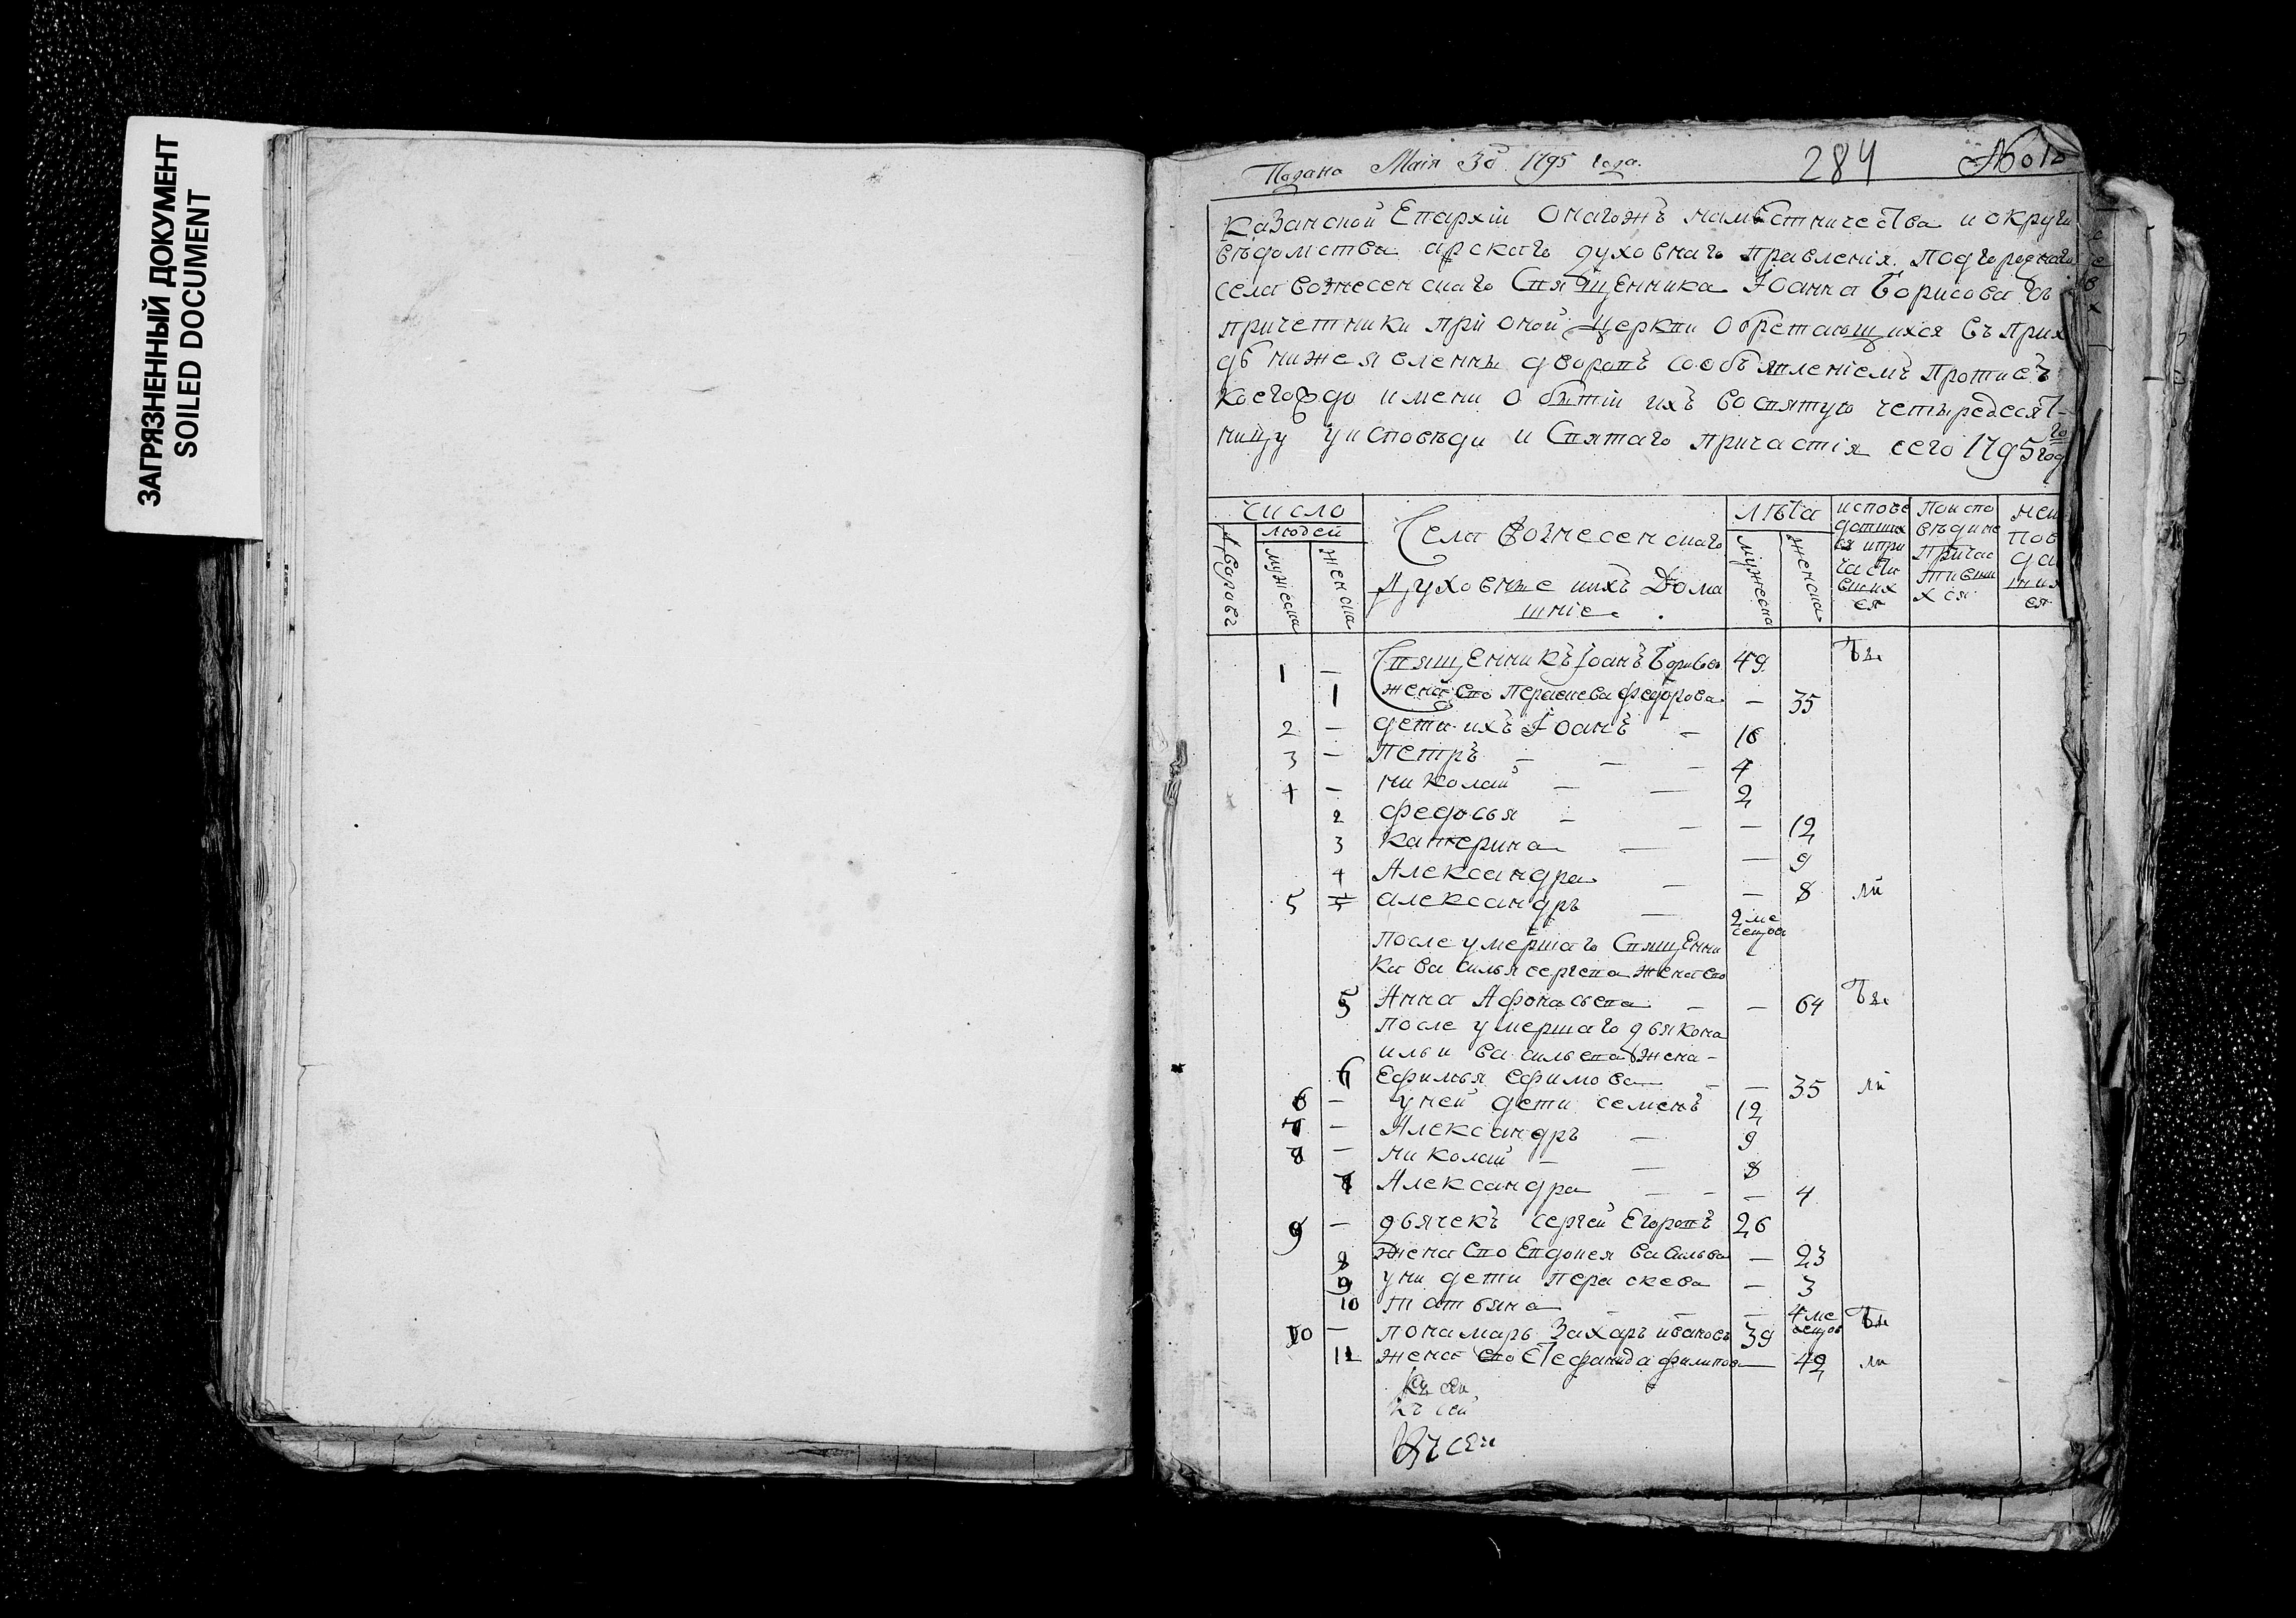 ЗАГРЯЗНЕННЫЙ ДОКУМЕНТ
SOILED DOCUMENT
Подано Маія 30 1795 года.
284
Казанской Епархіи онагожъ намѣстничества и округи
вѣдомства арскаго духовнаго правленія подгороднаго
села вознесенскаго Священника Іоанна Борисова съ
причетники при оной Церкви обретающихся въ прихо
дѣ нижеявленны дворовъ со объявленіемъ противъ
коегождо имени о бытіи ихъ во святую четыредесят-
ницу у исповѣди и Святаго причастія сего 1795 го год
Число
людей
Дворовъ
мужеска
женска
Села Вознесенскаго
Духовные и ихъ Дома
шніе
лѣта
мужеска
женска
испове
давших
ся и при
части
вших
ся
По испо
вѣди не
причас
тивши
хся
неи
пов
да
вших
ся
1 — Священникъ Іоанъ Борисовъ 49
1 жена ево Парасиева федорова — 35
2 — дети ихъ Іоанъ — 16
3 — Петръ — 4
4 — николай — 2
2 федосья — — 12
3 Катерина — — 9
4 Александра — — 8
5 александръ — 2 ме
сецов
После умершаго Священни
ка василья сергева жена ево
5 Анна Афонасьева — — 64
после умершаго дьякона
ильи васильева жена -
6 Ефимья ефимова — — 35
6 — у ней дети семенъ 12
7 — Александръ — 9
8 — николай — 8
7 Александра — — 4
9 — дьячекъ сергей Егоровъ 26
8 жена ево Евдокея васильва — 23
9 у ни дети параскева — 3
10 татьяна — — 4 ме
сецов
10 — понамарь Захаръ ивановъ 39
11 жена ево Стефанида филипова — 42
къ сей